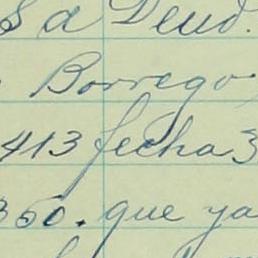 Sa Deud.
Borrego
413 fecha 3
350. que ya